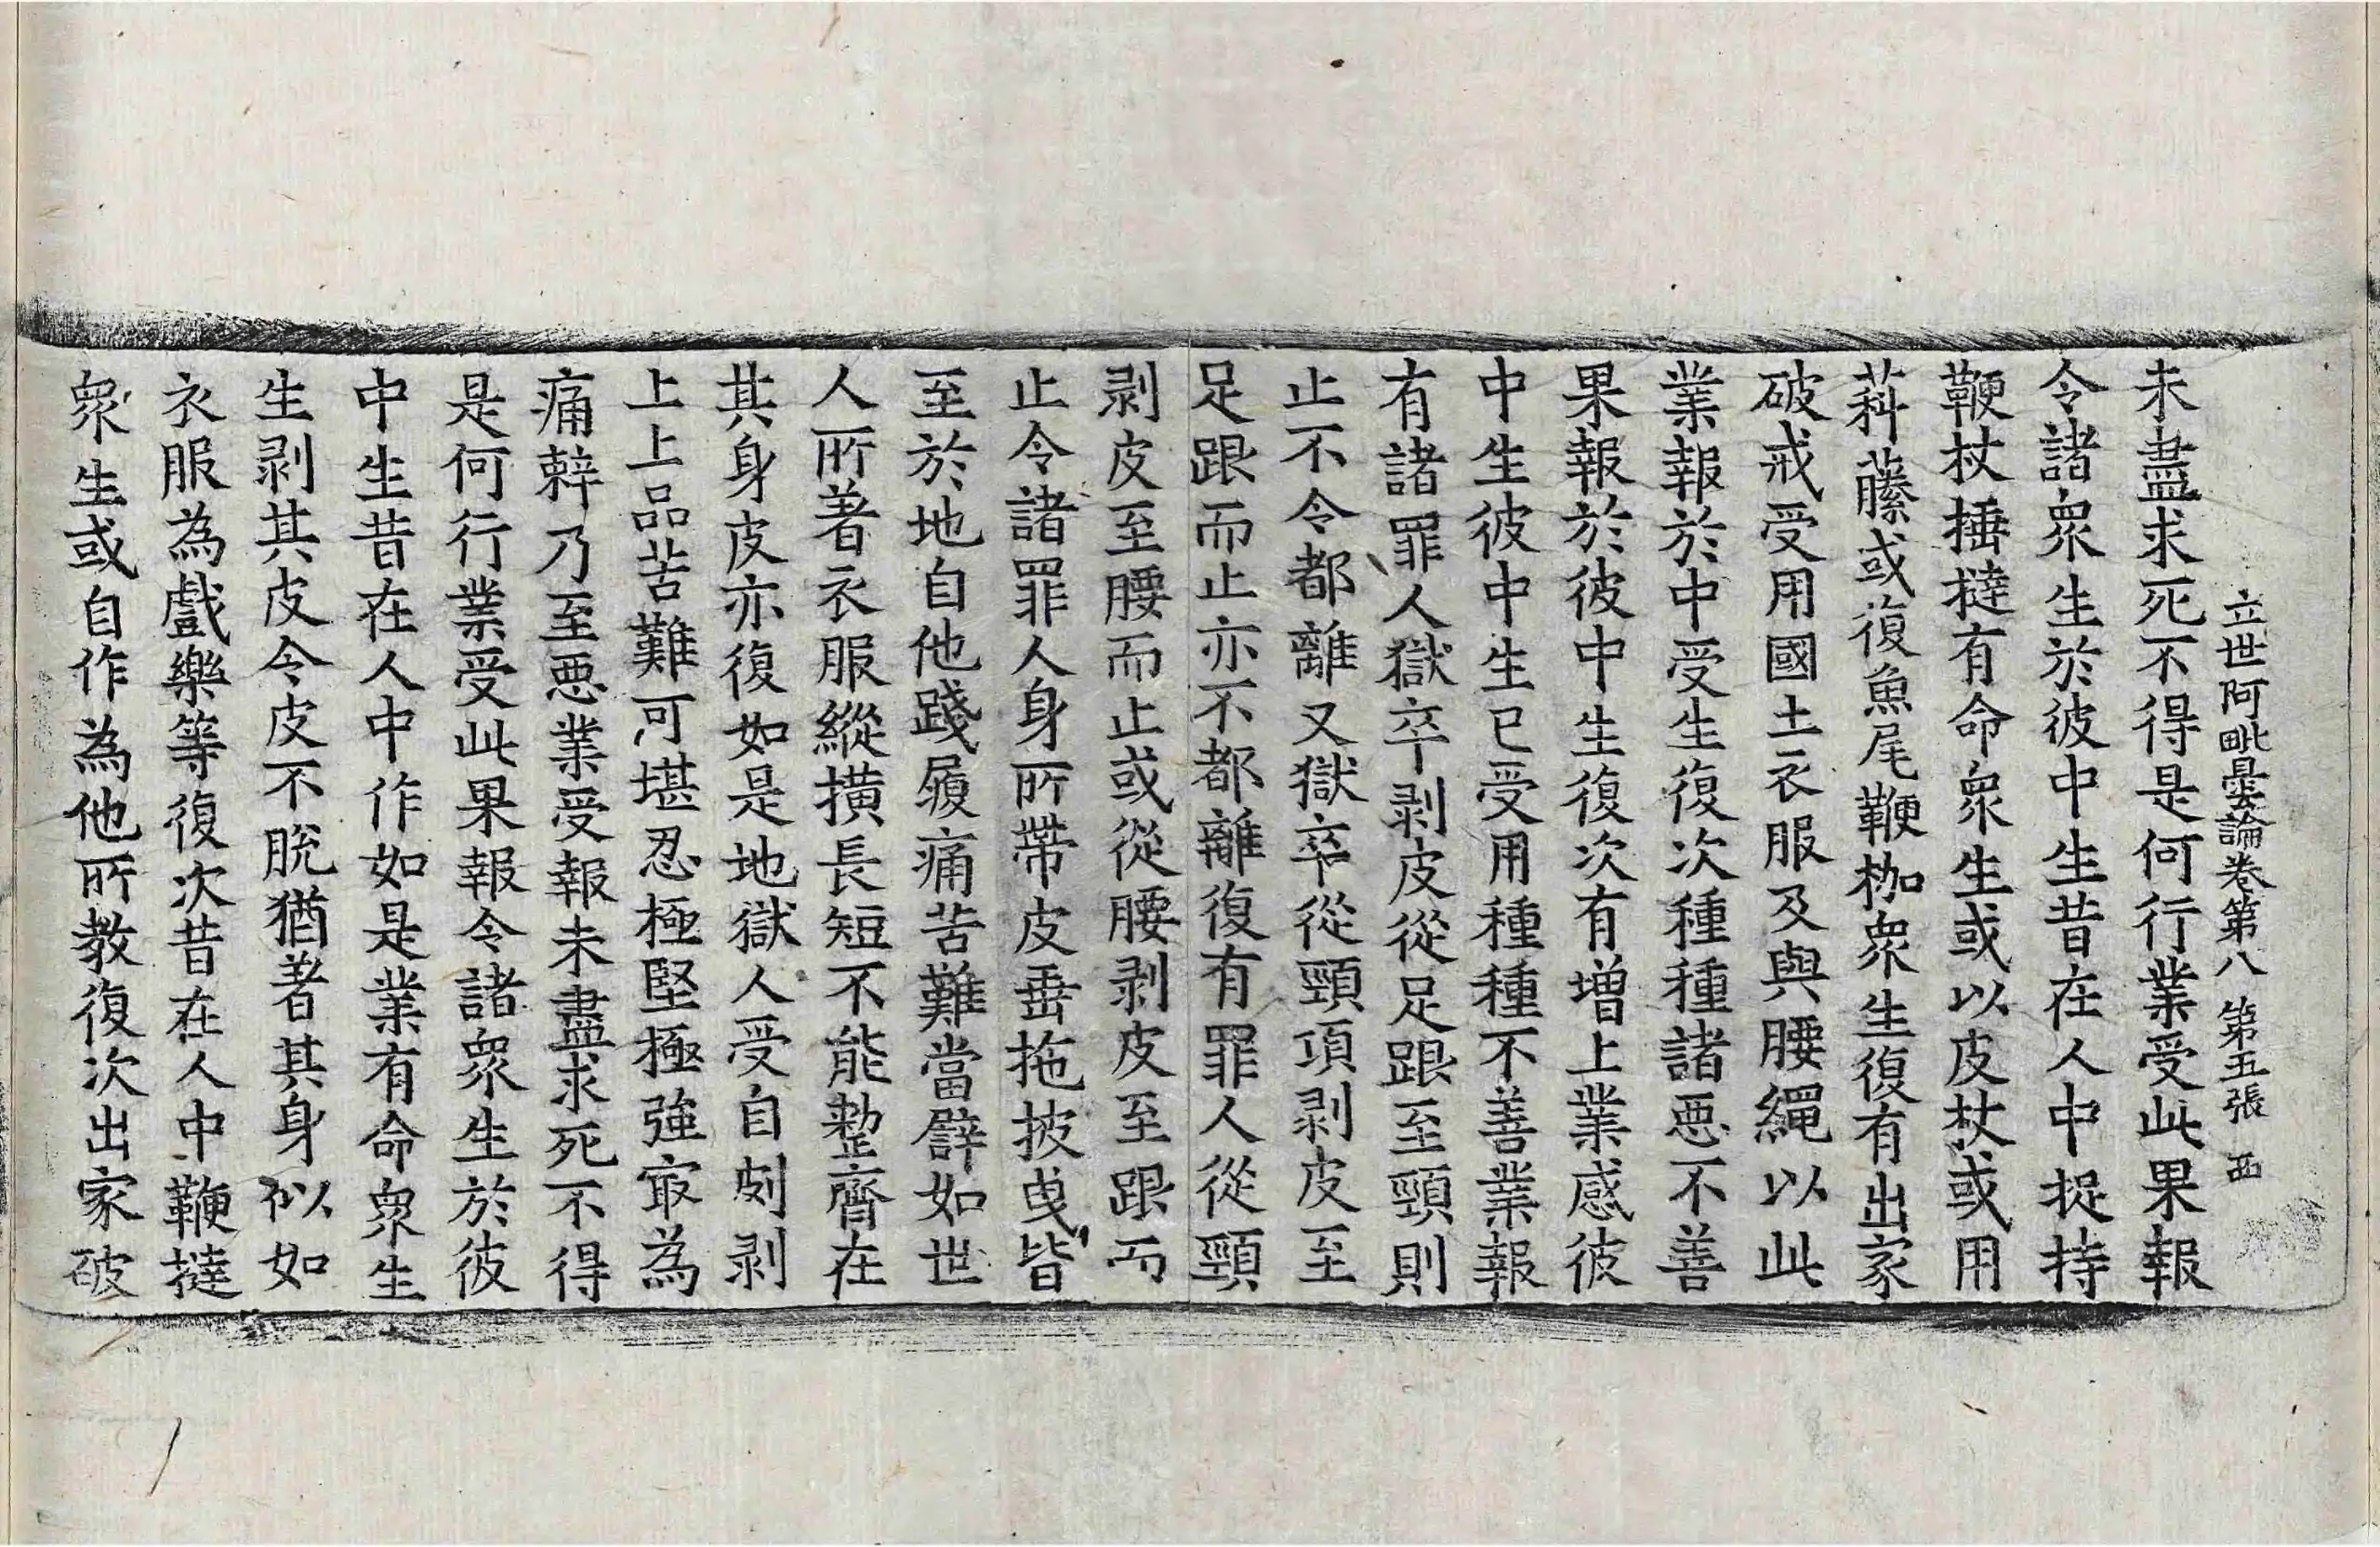 立世阿毗曇論卷第八 第五張 西
未盡求死不得是何行業受此果報
令諸衆生於彼中生昔在人中捉持
鞭杖捶撻有命衆生或以皮杖或用
藤或復魚尾鞭枷衆生復有出家
破戒受用國土衣服及與腰繩以此
業報於中受生復次種種諸惡不善
果報於彼中生復次有增上業感彼
中生彼中生已受用種種不善業報
有諸罪人獄卒剥皮從足跟至頸則
止不令都離又獄卒從頸項剥皮至
足跟而止亦不都離復有罪人從頸
剥皮至腰而止或從腰剥皮至跟而
止令諸罪人身所帶皮垂拖披曳皆
至於地自他踐履痛苦難當譬如世
人所著衣服縱橫長短不能整齊在
其身皮亦復如是地獄人受自剫剥
上上品苦難可堪忍極堅極強冣為
痛辢乃至惡業受報未盡求死不得
是何行業受此果報令諸衆生於彼
中生昔在人中作如是業有命衆生
生剥其皮令皮不脱猶著其身似如
衣服為戲樂等復次昔在人中鞭撻
衆生或自作為他所教復次出家破